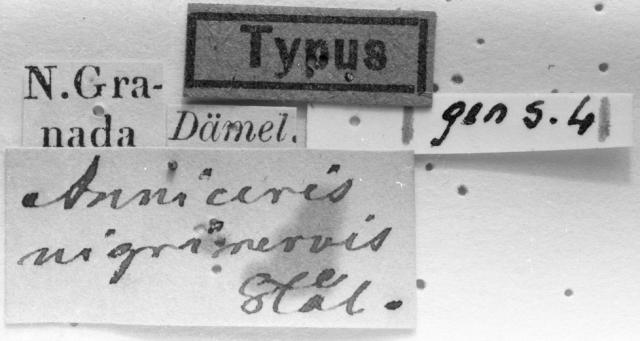 Typus
N.Gra-
nada
Dämel.
gen s. 4
Anniceris
nigrinervis
Stål.